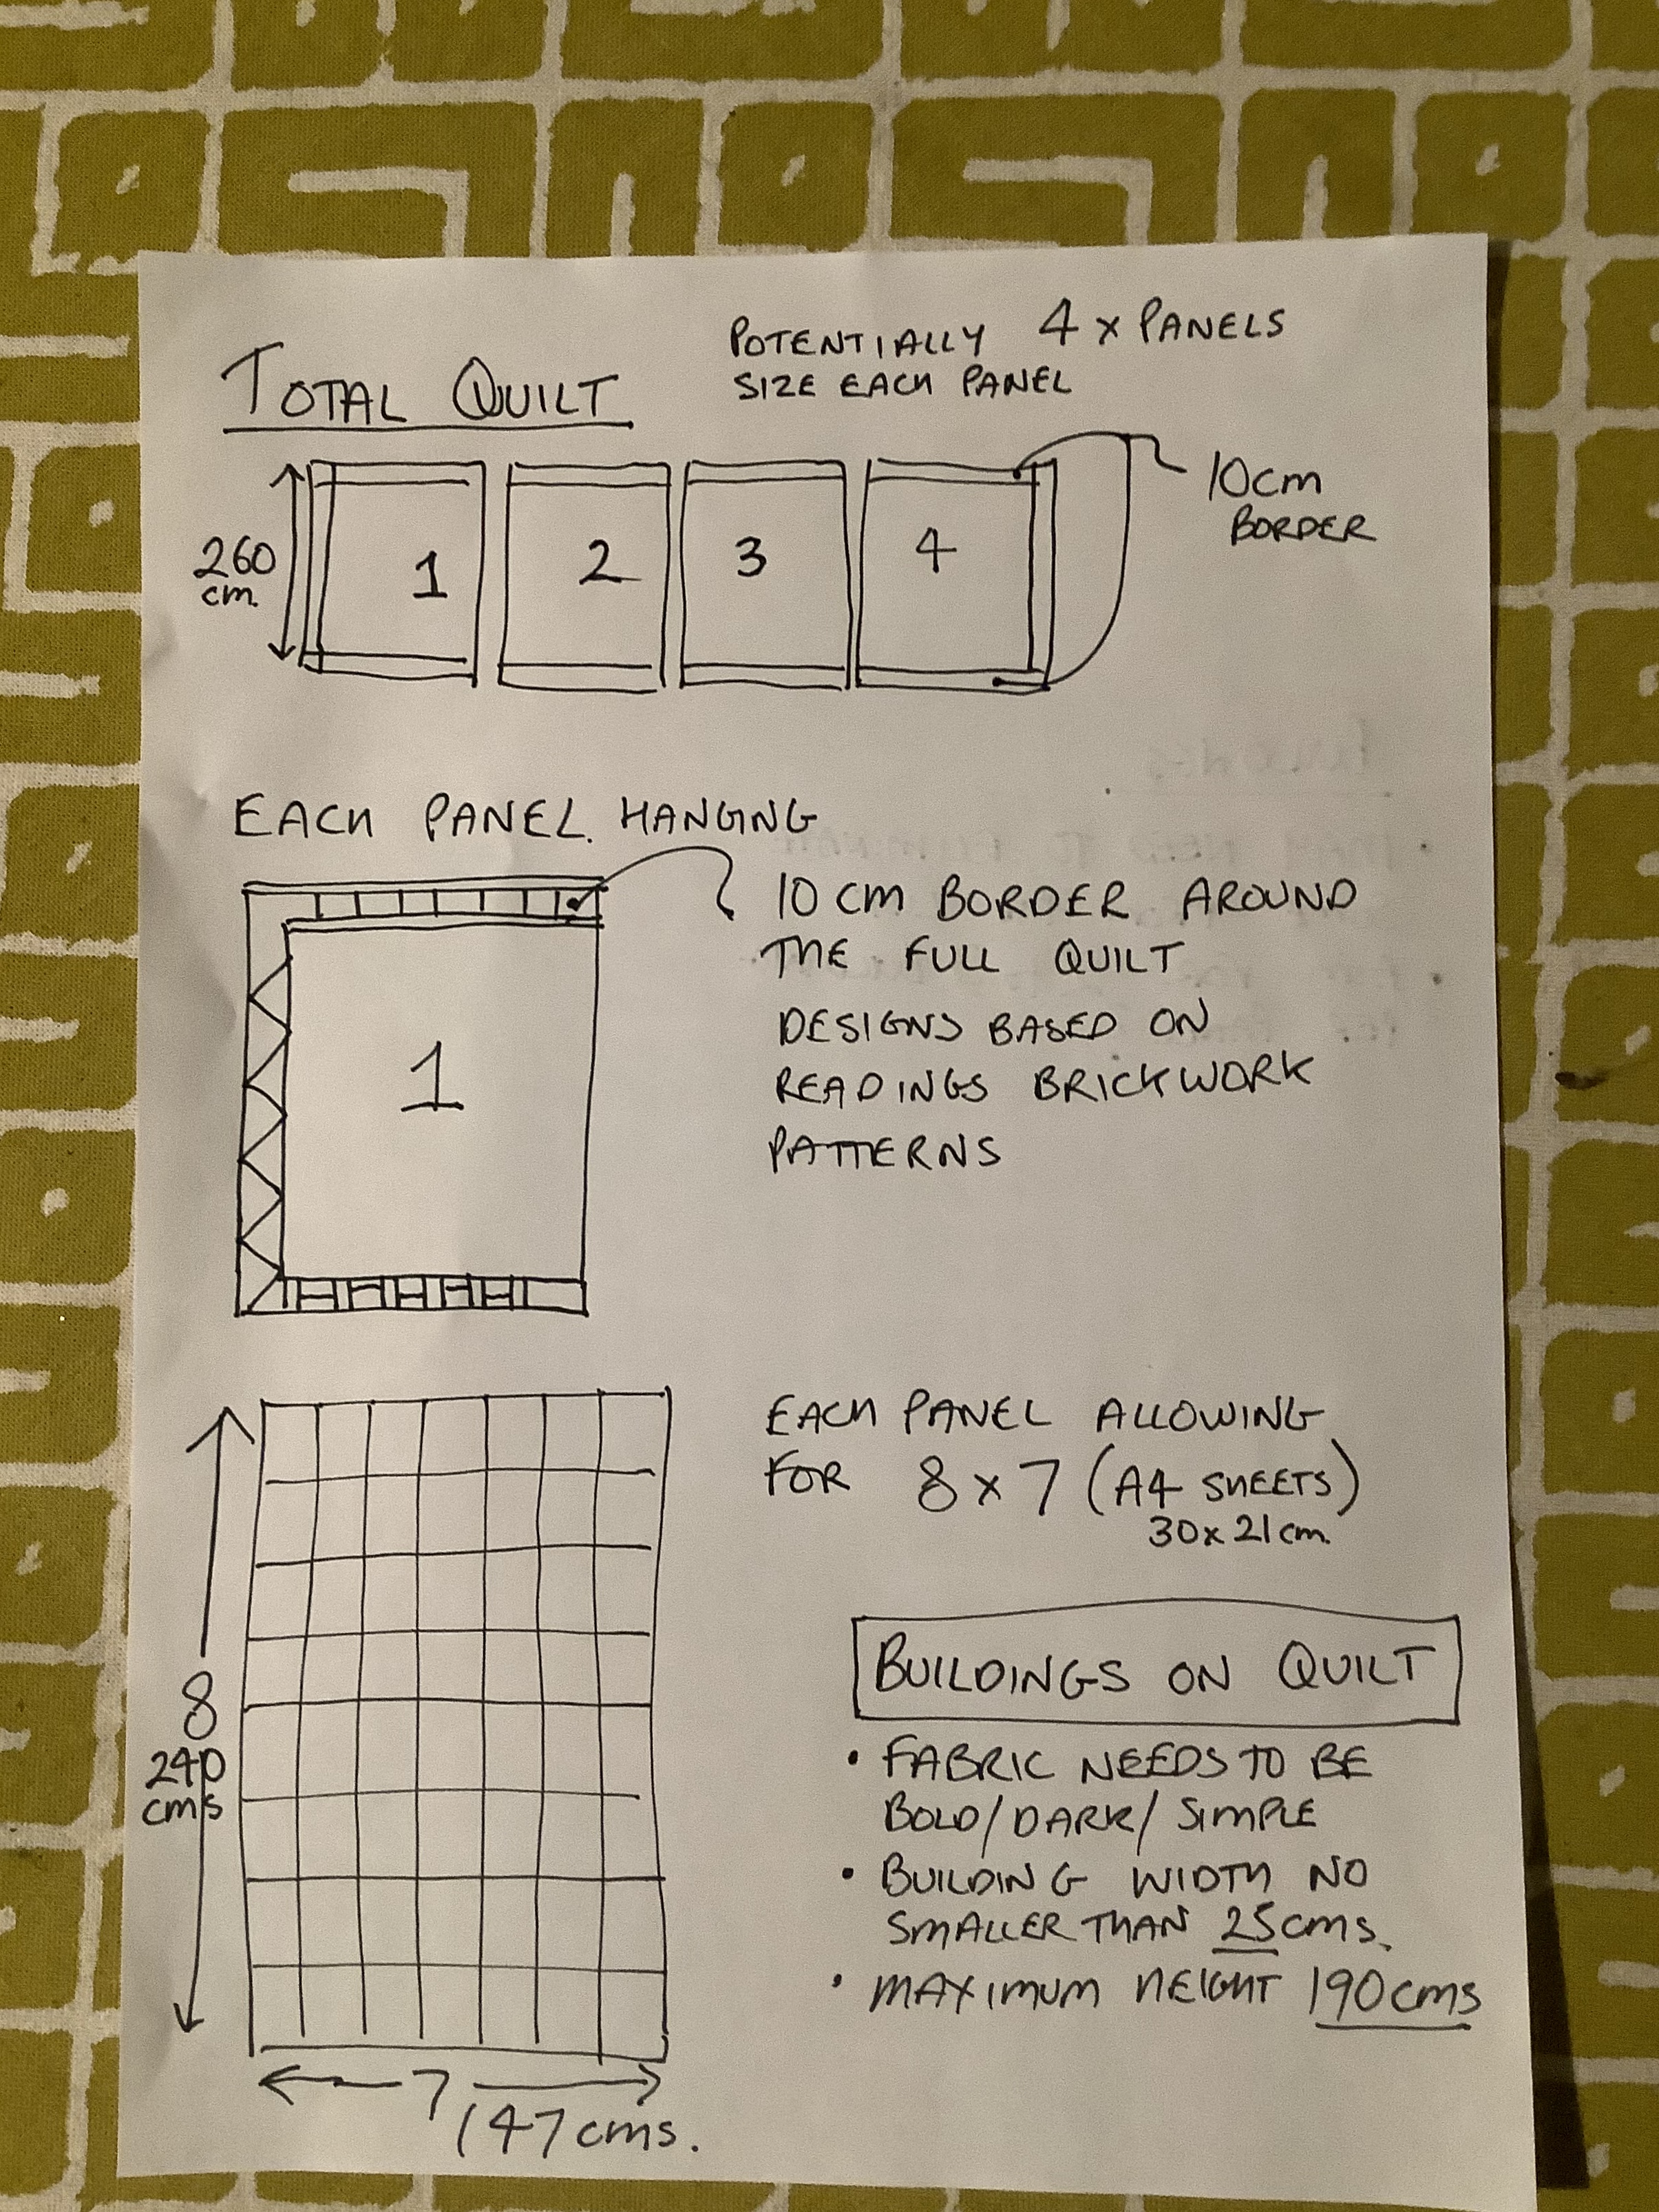 TOTAL QUILT
POTENTIALLY 4 x PANELS
SIZE EACH PANEL
260
cm.
1
2
3
4
10cm
BORDER
EACH PANEL. HANGING
1
10 CM BORDER AROUND
THE FULL QUILT
DESIGNS BASED ON
READINGS BRICKWORK
PATTERNS
8
240
cms
7
147 cms.
EACH PANEL ALLOWING
FOR 8 x 7 (A4 SHEETS)
30 x 21 cm.
BUILDINGS ON QUILT
• FABRIC NEEDS TO BE
BOLD/DARK/SIMPLE
• BUILDING WIDTH NO
SMALLER THAN 25cms.
• MAXIMUM HEIGHT 190cms